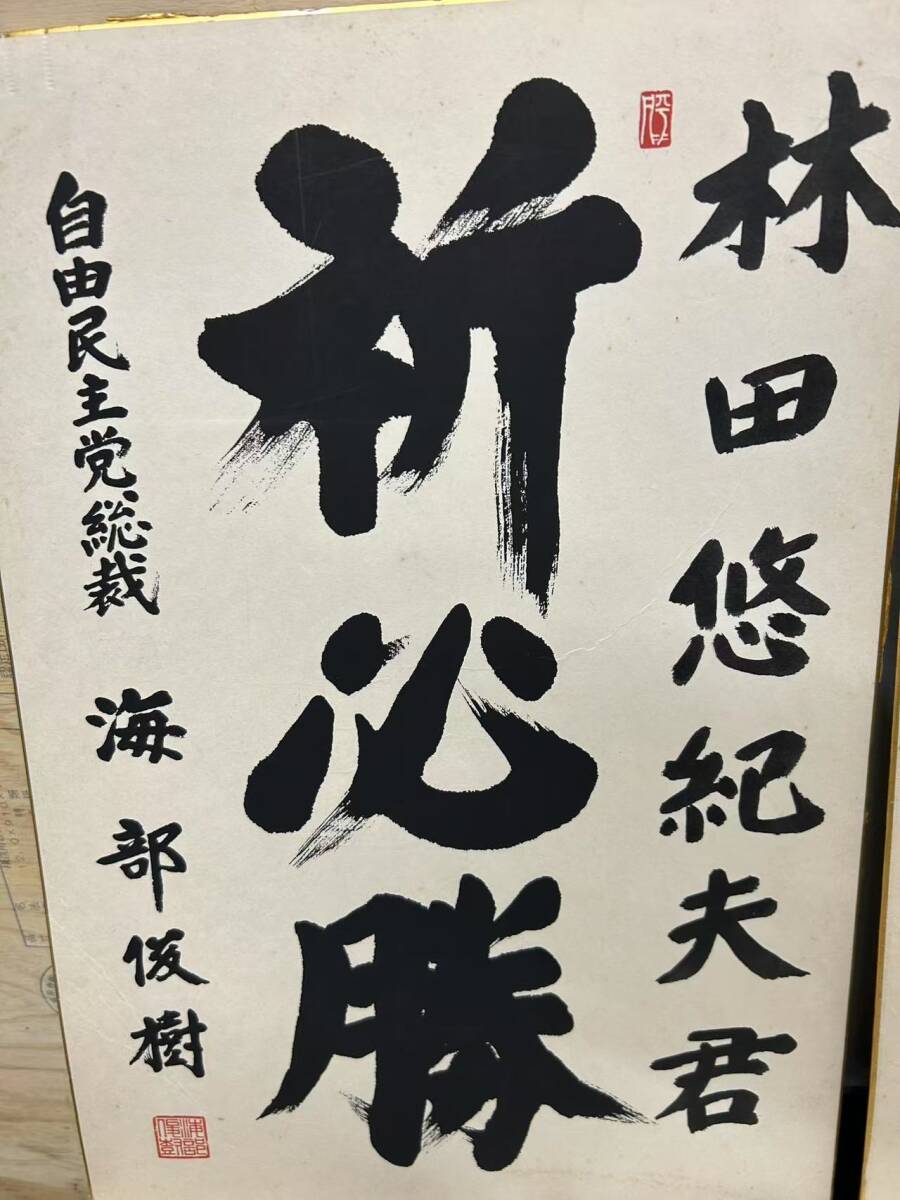 林田悠紀夫君
祈必勝
自由民主党総裁
海部俊樹